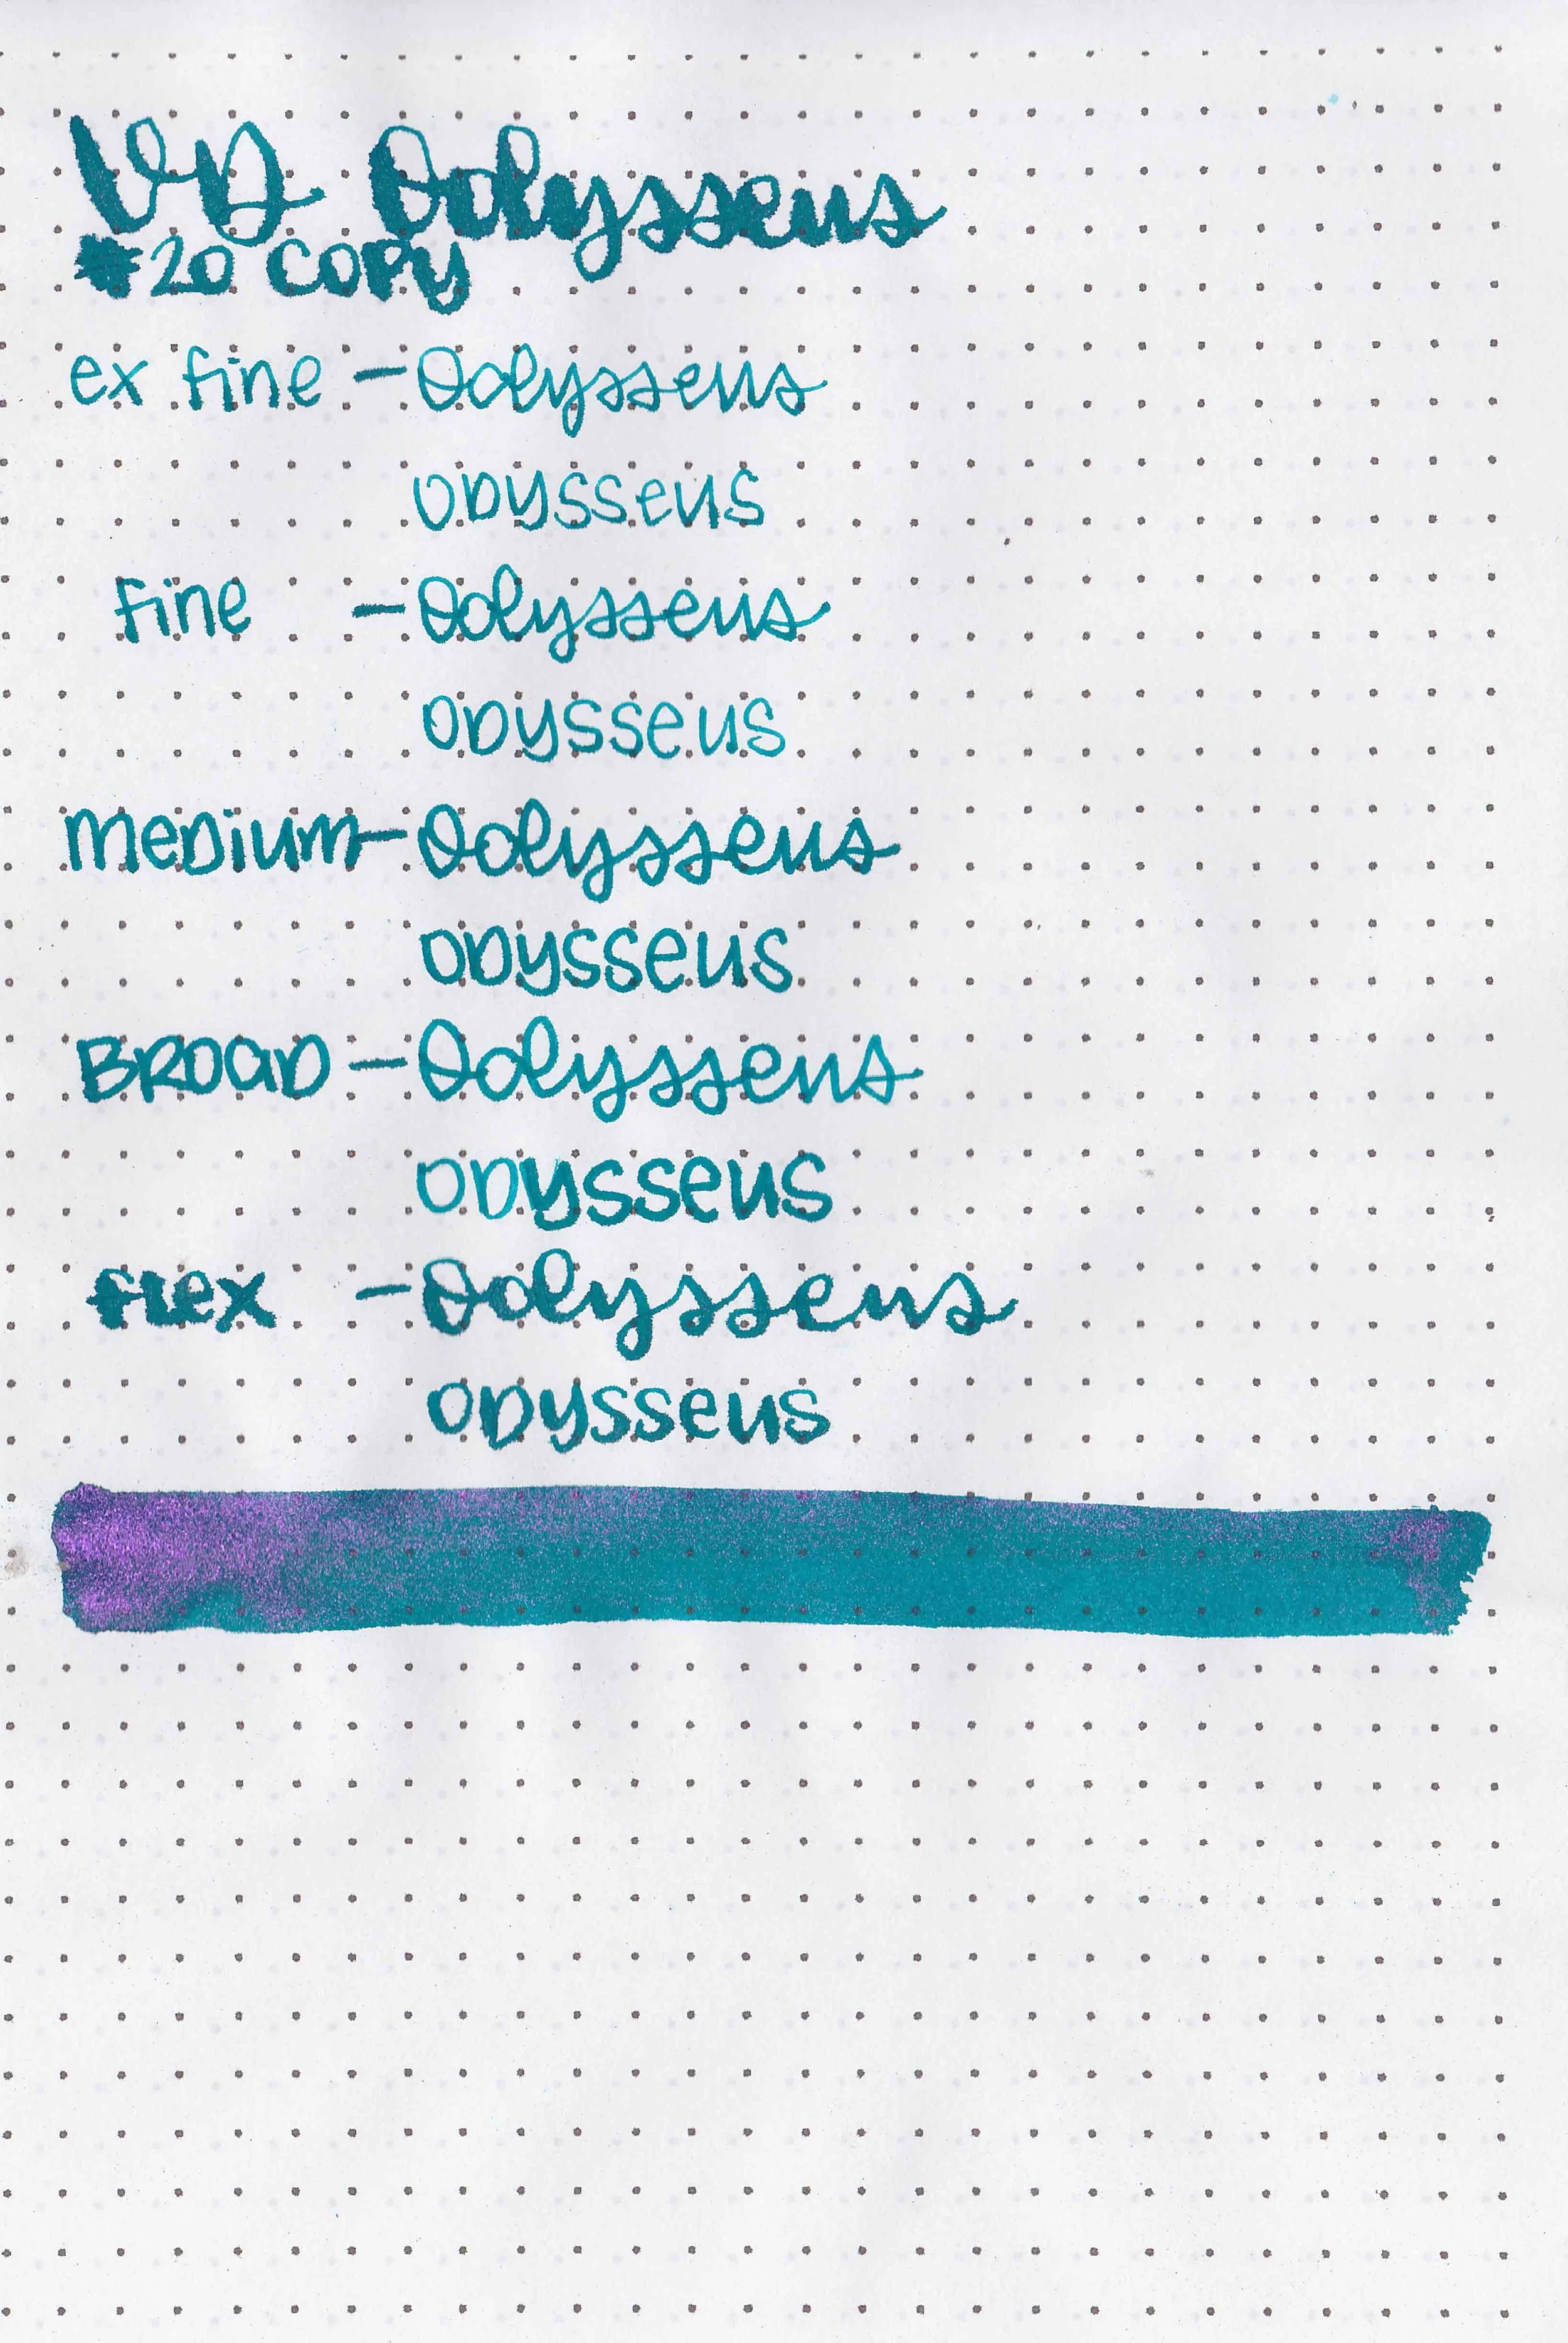 VD Odysseus
#20 COPY
ex fine - Odysseus
ODYSSEUS
fine - Odysseus
ODYSSEUS
MEDIUM - Odysseus
ODYSSEUS
BROAD - Odysseus
ODYSSEUS
FLEX - Odysseus
ODYSSEUS